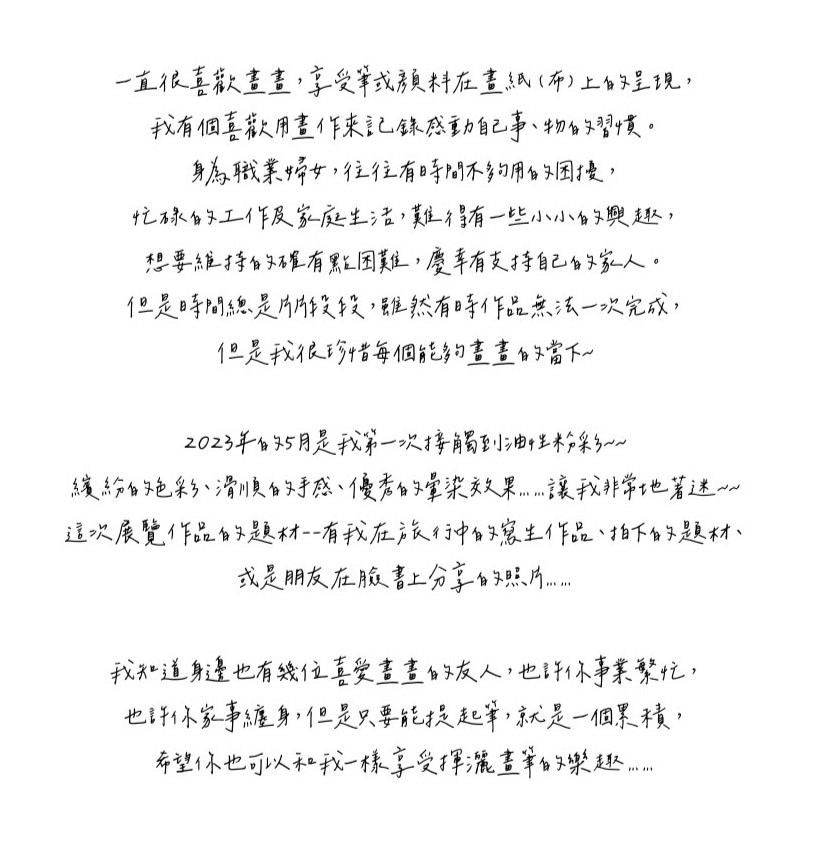 一直很喜歡畫畫，享受筆或顏料在畫紙(布)上的呈現，
我有個喜歡用畫作來記錄感動自己事、物的習慣。
身為職業婦女，往往有時間不夠用的困擾，
忙碌的工作及家庭生活，難得有一些小小的興趣，
想要維持的確有點困難，慶幸有支持自己的家人。
但是時間總是片片段段，雖然有時作品無法一次完成，
但是我很珍惜每個能夠畫畫的當下~
2023年的5月是我第一次接觸到油性粉彩~~
繽紛的色彩、滑順的手感、優秀的暈染效果……讓我非常地著迷~~
這次展覽作品的題材--有我在旅行中的寫生作品、拍下的題材、
或是朋友在臉書上分享的照片……
我知道身邊也有幾位喜愛畫畫的友人，也許你事業繁忙，
也許你家事纏身，但是只要能提起筆，就是一個累積，
希望你也可以和我一樣享受揮灑畫筆的樂趣……